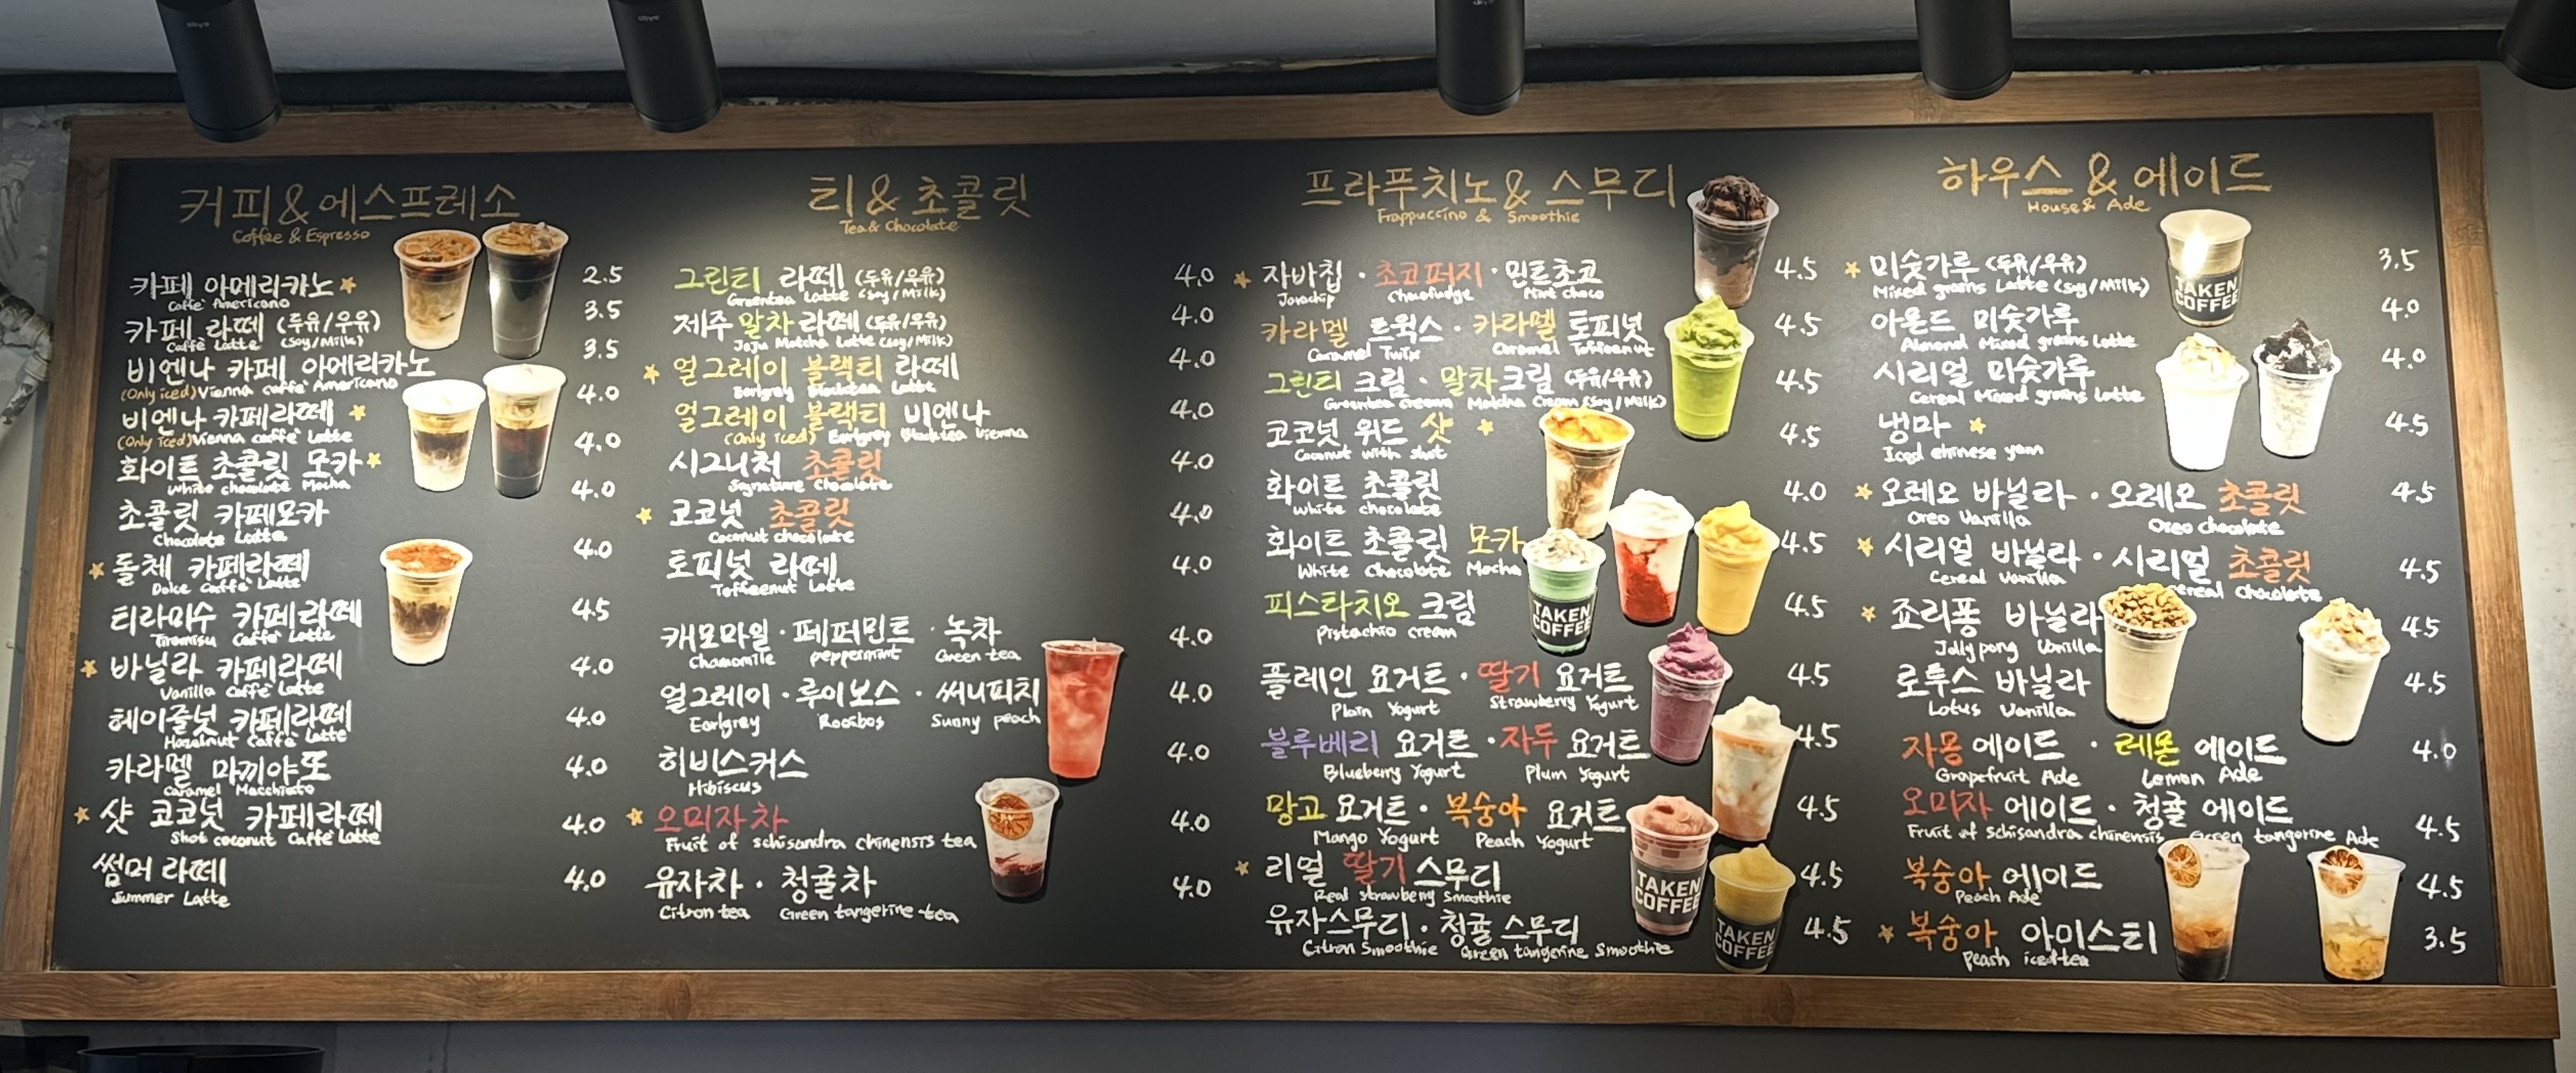 커피 & 에스프레소
Coffee & Espresso
카페 아메리카노 2.5
Caffe Americano
카페 라떼 (두유/우유) 3.5
Caffe Latte (Soy/Milk)
비엔나 카페 아메리카노 3.5
(Only iced) Vienna caffe Americano
비엔나 카페라떼 4.0
(Only iced) Vienna caffe Latte
화이트 초콜릿 모카 4.0
White chocolate Mocha
초콜릿 카페모카 4.0
Chocolate Latte
돌체 카페라떼 4.0
Dolce Caffe Latte
티라미수 카페라떼 4.5
Tiramisu Caffe Latte
바닐라 카페라떼 4.0
Vanilla Caffe Latte
헤이즐넛 카페라떼 4.0
Hazelnut Caffe Latte
카라멜 마끼아또 4.0
Caramel Macchiato
샷 코코넛 카페라떼 4.0
Shot coconut Caffe Latte
썸머 라떼 4.0
Summer Latte
티 & 초콜릿
Tea & Chocolate
그린티 라떼 (두유/우유) 4.0
Greentea Latte (Soy/Milk)
제주 말차 라떼 (두유/우유) 4.0
Jeju Matcha Latte (Soy/Milk)
얼그레이 블랙티 라떼 4.0
Earlgrey Blacktea Latte
얼그레이 블랙티 비엔나 4.0
(Only iced) Earlgrey Blacktea Vienna
시그니처 초콜릿 4.0
Signature Chocolate
코코넛 초콜릿 4.0
Coconut chocolate
토피넛 라떼 4.0
Toffeenut Latte
캐모마일 · 페퍼민트 · 녹차 4.0
Chamomile peppermint Green tea
얼그레이 · 루이보스 · 써니피치 4.0
Earlgrey Rooibos Sunny peach
히비스커스 4.0
Hibiscus
오미자차 4.0
Fruit of schisandra chinensis tea
유자차 · 청귤차 4.0
Citron tea Green tangerine tea
프라푸치노 & 스무디
Frappuccino & Smoothie
자바칩 · 초코퍼지 · 민트초코 4.5
Javachip Chocofudge Mint choco
카라멜 트윅스 · 카라멜 토피넛 4.5
Caramel Twix Caramel Toffeenut
그린티 크림 · 말차크림 (두유/우유) 4.5
Greentea cream Matcha Cream (Soy/Milk)
코코넛 위드 샷 4.5
Coconut with shot
화이트 초콜릿 4.0
White chocolate
화이트 초콜릿 모카 4.5
White Chocolate Mocha
피스타치오 크림 4.5
Pistachio cream
플레인 요거트 · 딸기 요거트 4.5
Plain Yogurt Strawberry Yogurt
블루베리 요거트 · 자두 요거트 4.5
Blueberry Yogurt Plum Yogurt
망고 요거트 · 복숭아 요거트 4.5
Mango Yogurt Peach Yogurt
리얼 딸기 스무디 4.5
Real strawberry Smoothie
유자스무디 · 청귤 스무디 4.5
Citron Smoothie Green tangerine Smoothie
TAKEN
COFFEE
TAKEN
COFFEE
TAKEN
COFFEE
하우스 & 에이드
House & Ade
미숫가루 (두유/우유) 3.5
Mixed grains Latte (Soy/Milk)
아몬드 미숫가루 4.0
Almond Mixed grains Latte
시리얼 미숫가루 4.0
Cereal Mixed grains Latte
냉마 4.5
Iced chinese yam
오레오 바닐라 · 오레오 초콜릿 4.5
Oreo Vanilla Oreo chocolate
시리얼 바닐라 · 시리얼 초콜릿 4.5
Cereal Vanilla Cereal Chocolate
죠리퐁 바닐라 4.5
Jollypong Vanilla
로투스 바닐라 4.5
Lotus Vanilla
자몽 에이드 · 레몬 에이드 4.0
Grapefruit Ade Lemon Ade
오미자 에이드 · 청귤 에이드 4.5
Fruit of schisandra chinensis Green tangerine Ade
복숭아 에이드 4.5
Peach Ade
복숭아 아이스티 3.5
Peach icedtea
TAKEN
COFFEE